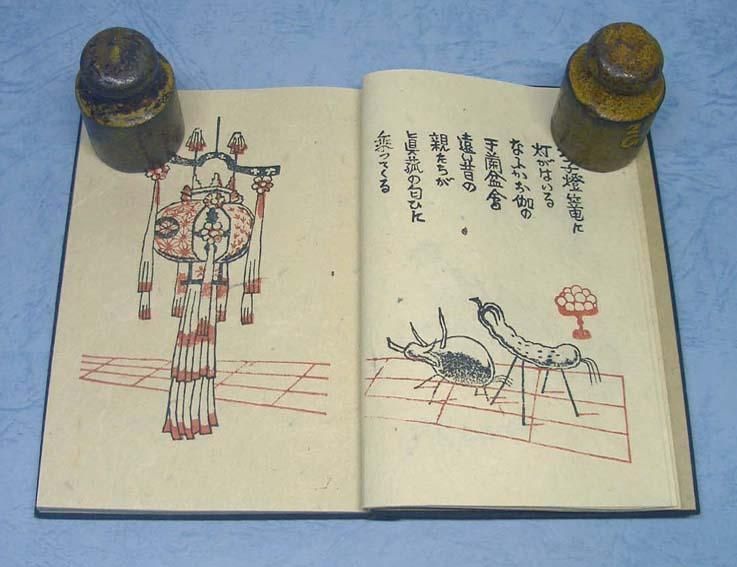 子燈篭に
灯がはいる
なにかお伽の
于蘭盆會
遠い昔の
親たちが
眞菰の匂ひに
乗つてくる